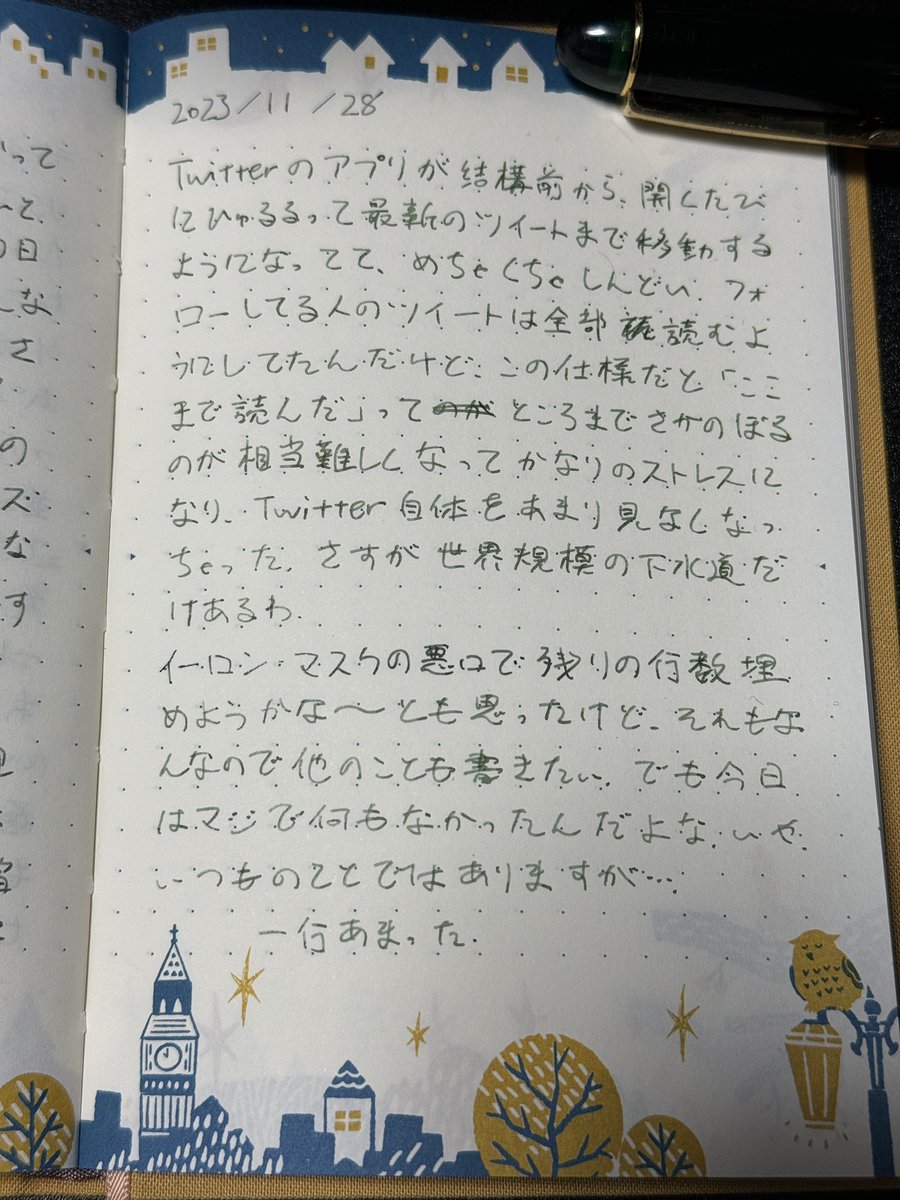 2023/11/28
Twitterのアプリが結構前から、開くたび
にひゅるるって最新のツイートまで移動する
ようになってて、めちゃくちゃしんどい。フォ
ローしてる人のツイートは全部読むよ
うにしてたんだけど、この仕様だと「ここ
まで読んだ」って ところまでさかのぼる
のが相当難しくなってかなりのストレスに
なり、Twitter自体をあまり見なくなっ
ちゃった。さすが世界規模の下水道だ
けあるわ。
イーロン・マスクの悪口で残りの行数埋
めようかな〜とも思ったけど、それもな
んなので他のことも書きたい。でも今日
はマジで何もなかったんだよな。いや、
いつものことではありますが…。
一行あまった。
って
と
日
な
さ
の
ズ
な
す